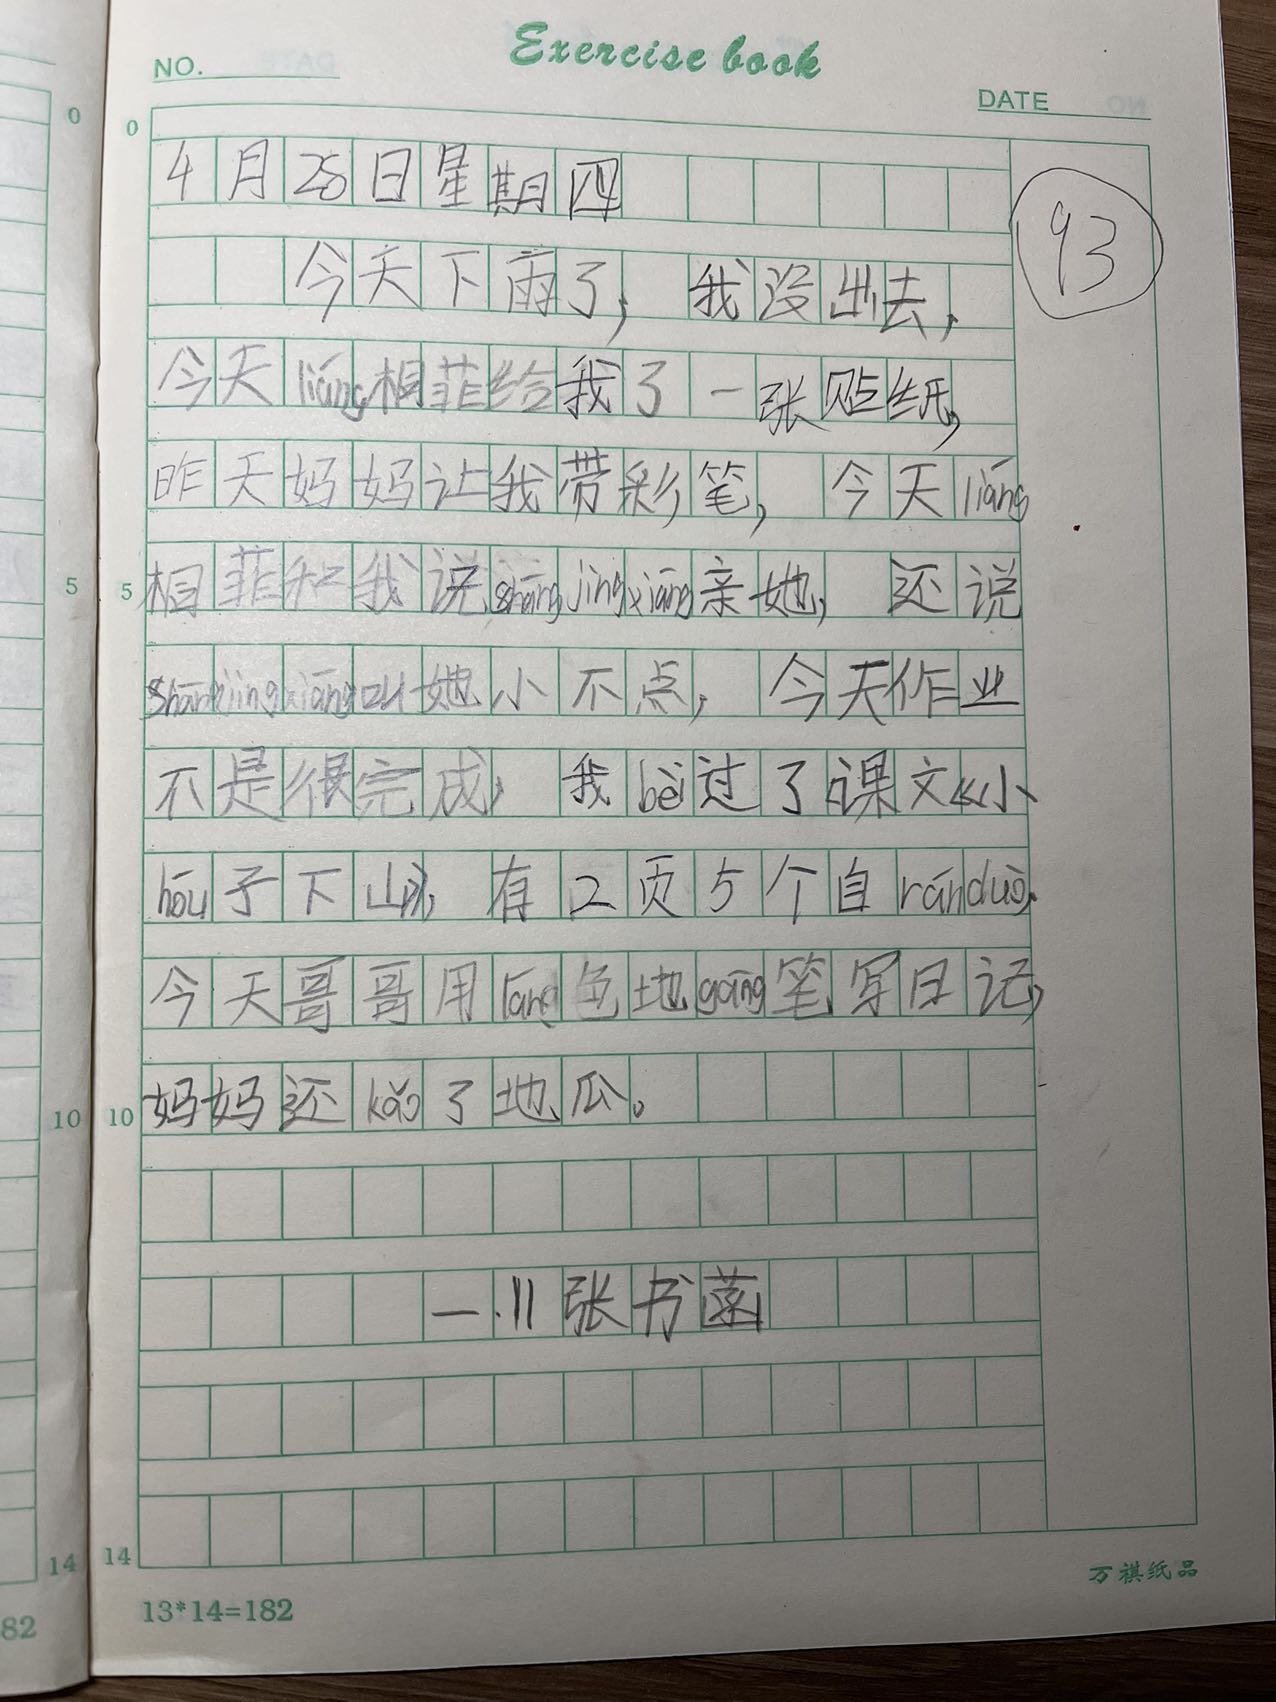 Exercise book
NO.
DATE
0
0
4月25日星期四
93
今天下雨了，我没出去，
今天liáng相菲给我了一张贴纸，
昨天妈妈让我带彩笔，今天liáng
5
5
相菲和我说shāngjìngxiáng亲她，还说
shāngjìngxiáng叫她小不点，今天作业
不是很完成，我bèi过了课文《小
hóu子下山》，有2页5个自ránduò，
今天哥哥用láng色地gāng笔写日记，
10
10
妈妈还kǎo了地瓜。
一.11张书菡
14
14
13*14=182
82
万祺纸品